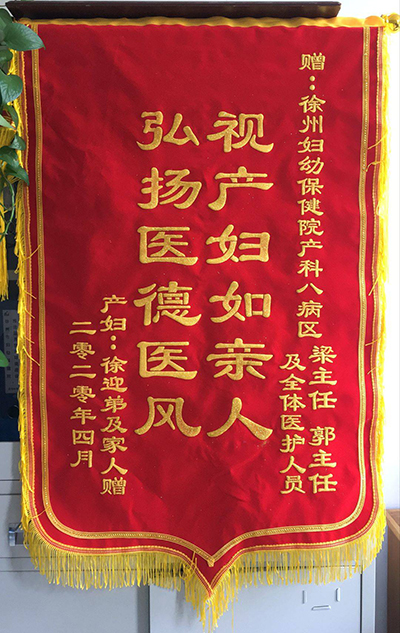 赠：徐州妇幼保健院产科八病区
梁主任 郭主任
及全体医护人员
视产妇如亲人
弘扬医德医风
产妇：徐迎弟及家人赠
二零二零年四月